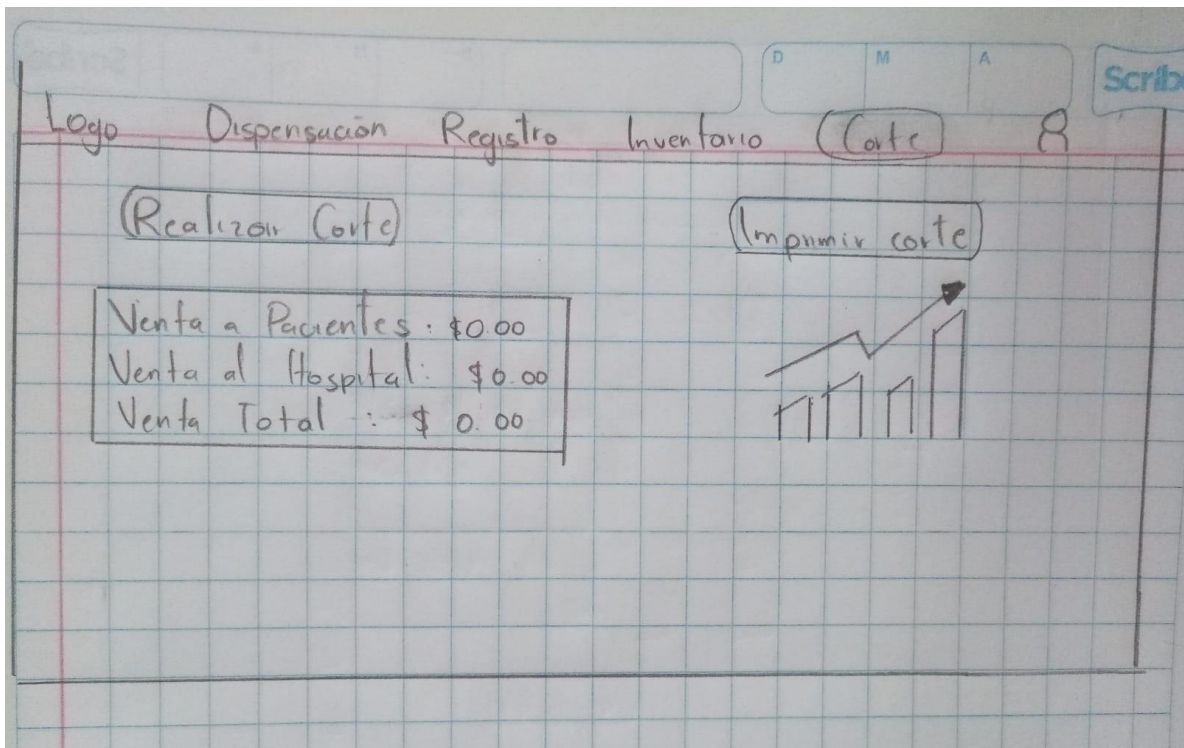 D M A Scrib
Logo Dispensación Registro Inventario Corte
Realizar Corte Imprimir corte
Venta a Pacientes: $0.00
Venta al Hospital: $0.00
Venta Total : $ 0.00